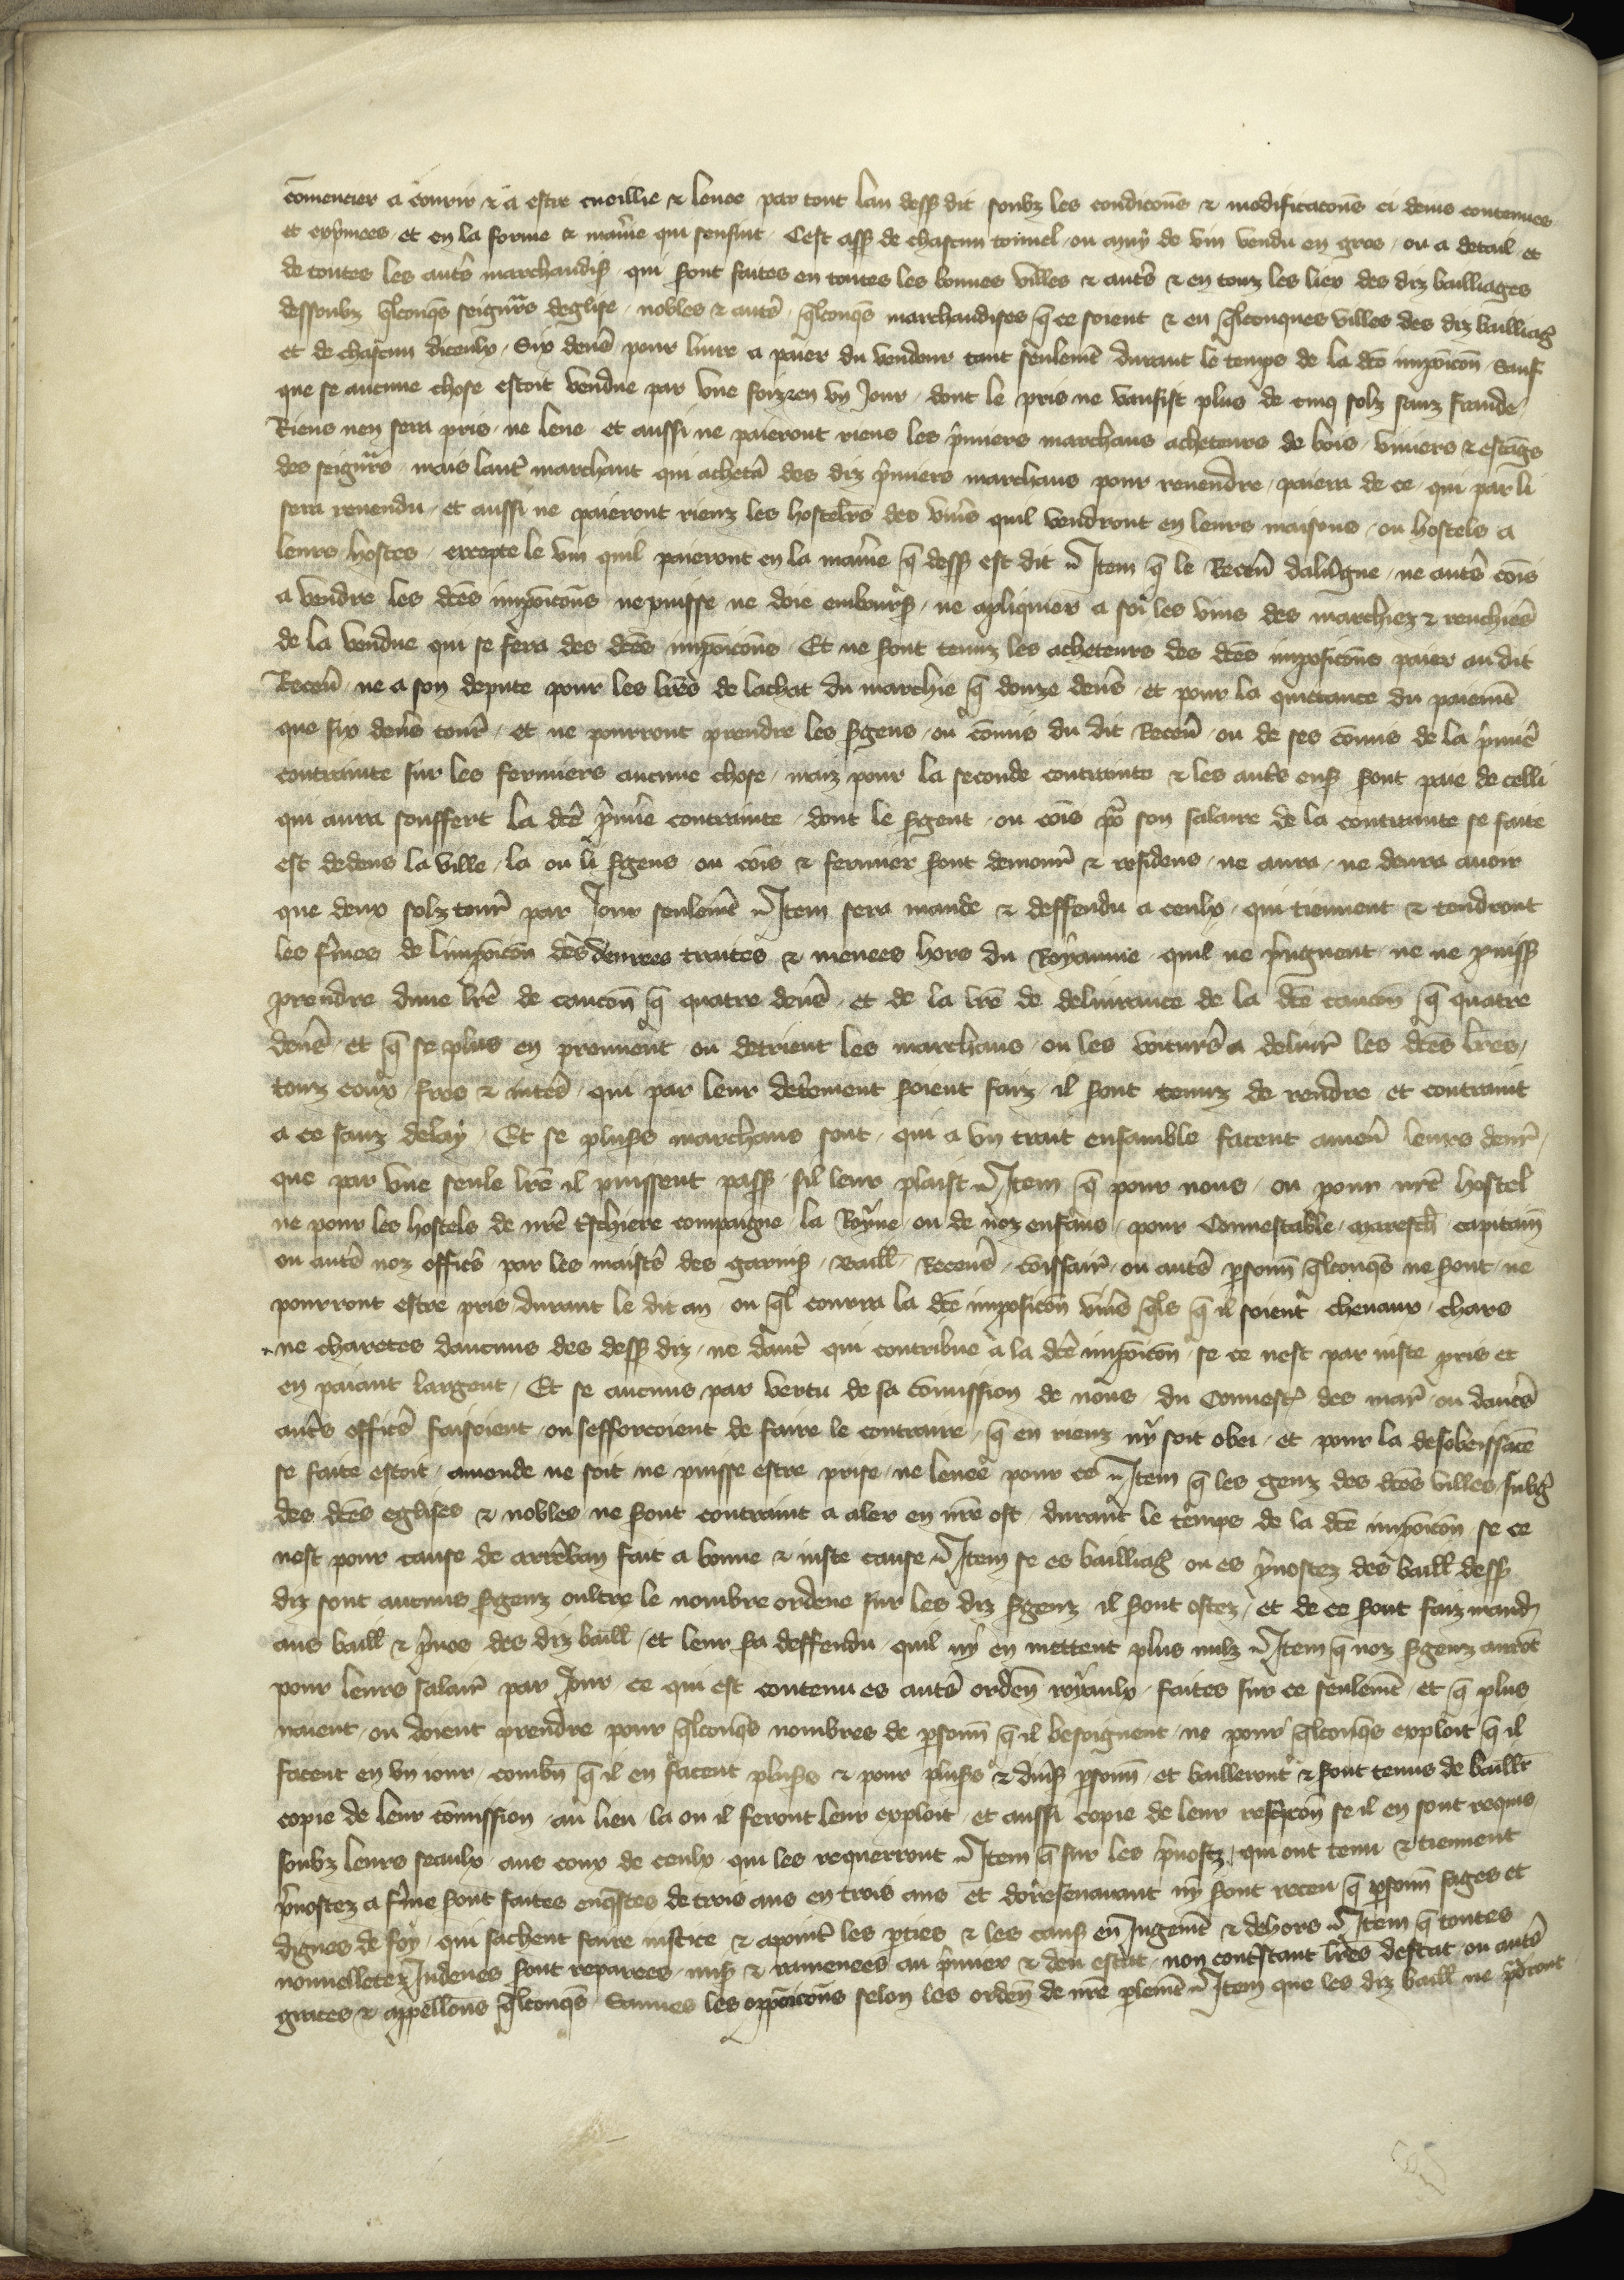 cōmencier a courir & a estre cueillie & levee par tout lan dess dit soubz les condicōns & modificacōns ci dens contenues
et expmees et en la forme & maniē qui sensuit Cest ass de chascun tonnel ou muy de vin vendu en gros ou a detail et
de toutes les autēs marchandis qui sont faites en toutes les bonnes villes & autēs & en touz les liex des diz bailliages
dessoubz qlconqs seignrs deglise nobles & autēs qlconqs marchandises q ce soient & en qlconques villes des diz bailliag
et de chascun diceulx Six denē pour livre a paier du vendeur tant seulemēt durant le temps de la dcē imposicōn Sauf
que se aucune chose estoit vendue par une foiz en un Jour dont le pris ne vausist plus de cinq solz sanz fraude
Riens nen sera pris ne leve et aussi ne paieront riens les pmiers marchans acheteurs de bois viviers & estāgs
des seignrs mais lautē marchant qui achetā des diz pmiers marchans pour revendre paiera de ce qui par li
sera revendu et aussi ne paieront rienz les hostelrs des vivrēs quil vendront en leurs maisons ou hostels a
leurs hostes excepte le vin quil paieront en la maniē q dess est dit Item q le Recev dalvgne ne autēs cōis
a vendre les dcēs imposicōns ne puisse ne doie embours ne apliquier a soi les vins des marchiez & renchiēs
de la vendue qui se fera des dcēs imposicōns Et ne sont tenuz les acheteurs des dcēs imposicōns paier au dit
Recev ne a son depute pour les lrēs de lachat du marchie q douze denē et pour la quittance du paiemēt
que six denē tour et ne pourront prendre les sgens ou cōmis du dit Recev ou de ses cōmis de la pmiē
contrainte sur les fermiers aucune chose maiz pour la seconde contrainte & les autēs ens sont paie de celli
qui aura souffert la dcē pmiē contrainte dont le sgent ou cōis po son salaire de la contrainte se faite
est dedens la ville la ou li sgens ou cōis & fermier sont demour & residens ne aura ne devra avoir
que deux solz tour par Jour seulemēt Item sera mande & deffendu a ceulx qui tiennent & tendront
les fmes de limposicōn des denrees traites & menees hors du Royaume quil ne pngnent ne ne puiss
prendre dune lrē de caucōn q quatre denē et de la lrē de delivrance de la dcē caucōn q quatre
denē et q se plus en prennent ou detrient les marchans ou les voiturēs a delivr les dcēs lrēs
touz coux fres & intēs qui par leur detemēt soient faiz il sont tenuz de rendre et contraint
a ce sanz delay Et se pluss marchans sont qui a un trait ensamble facent amen leurs denr
que par une seule lrē il puissent pass sil leur plaist Item q pour nous ou pour nrē hostel
ne pour les hostels de nrē tschiere compaigne la Royne ou de noz enfans pour Connestable maresch capitain
ou autēs noz officēs par les maistēs des garnis Baill Recevēs cōissair ou autēs psonn qlconqs ne sont ne
pourront estre pris durant le dit an ou ql courra la dcē imposicōn vivrēs qls q il soient chevaux chars
ne charetes daucuns des dess diz ne dautē qui contribue a la dcē imposicōn se ce nest par iuste pris et
en paiant largent Et se aucuns par vertu de sa cōmission de nous du Connest des mar ou dautēs
autēs officēs faisoient ou sefforcoient de faire le contraire q en rienz ny soit obei et pour la desobeissāce
se faite estoit amende ne soit ne puisse estre prise ne levee pour ce Item q les genz des dcēs villes subg
des dcēs eglises & nobles ne sont contraint a aler en nrē ost durant le temps de la dcē imposicōn se ce
nest pour cause de arrēban fait a bonne & iuste cause Item se es bailliag ou es pvostez des baill dess
diz sont aucuns sgenz oultre le nombre ordene sur les diz sgenz il sont ostez et de ce sont faiz mand
aus baill & pvos des diz baill et leur sa deffendu quil ny en mettent plus nulz Item q noz sgenz aurōt
pour leurs salair par Jour ce qui est contenu es autēs orden royaulx faites sur ce seulemēt et q plus
naient ou doient prendre pour qlconqs nombres de psonn q il besoignent ne pour qlconqs exploit q il
facent en un iour combn q il en facent pluss & pour pluss & divs psonn et bailleront & sont tenus de baillr
copie de leur cōmission au lieu la ou il feront leur exploit et aussi copie de leur rescpcōn se il en sont requis
soubz leurs seaulx aus coux de ceulx qui les requerront Item q sur les pvostz qui ont tenu & tiennent
pvostez a fme sont faites enqstes de trois ans en trois ans et doresenavant ny sont receu q psonn sages et
dignes de foy qui sachent faire iustice & apointē les pties & les caus en Jugemēt & dehors Item q toutes
nouvelletez Indeues sont reparees mis & ramenees au pmier & deu estat non contstant lrēs destat ou autēs
graces & appellōns qlconqs Sauves les opposicōns selon les orden de nrē plemēt Item que les diz baill ne pdront